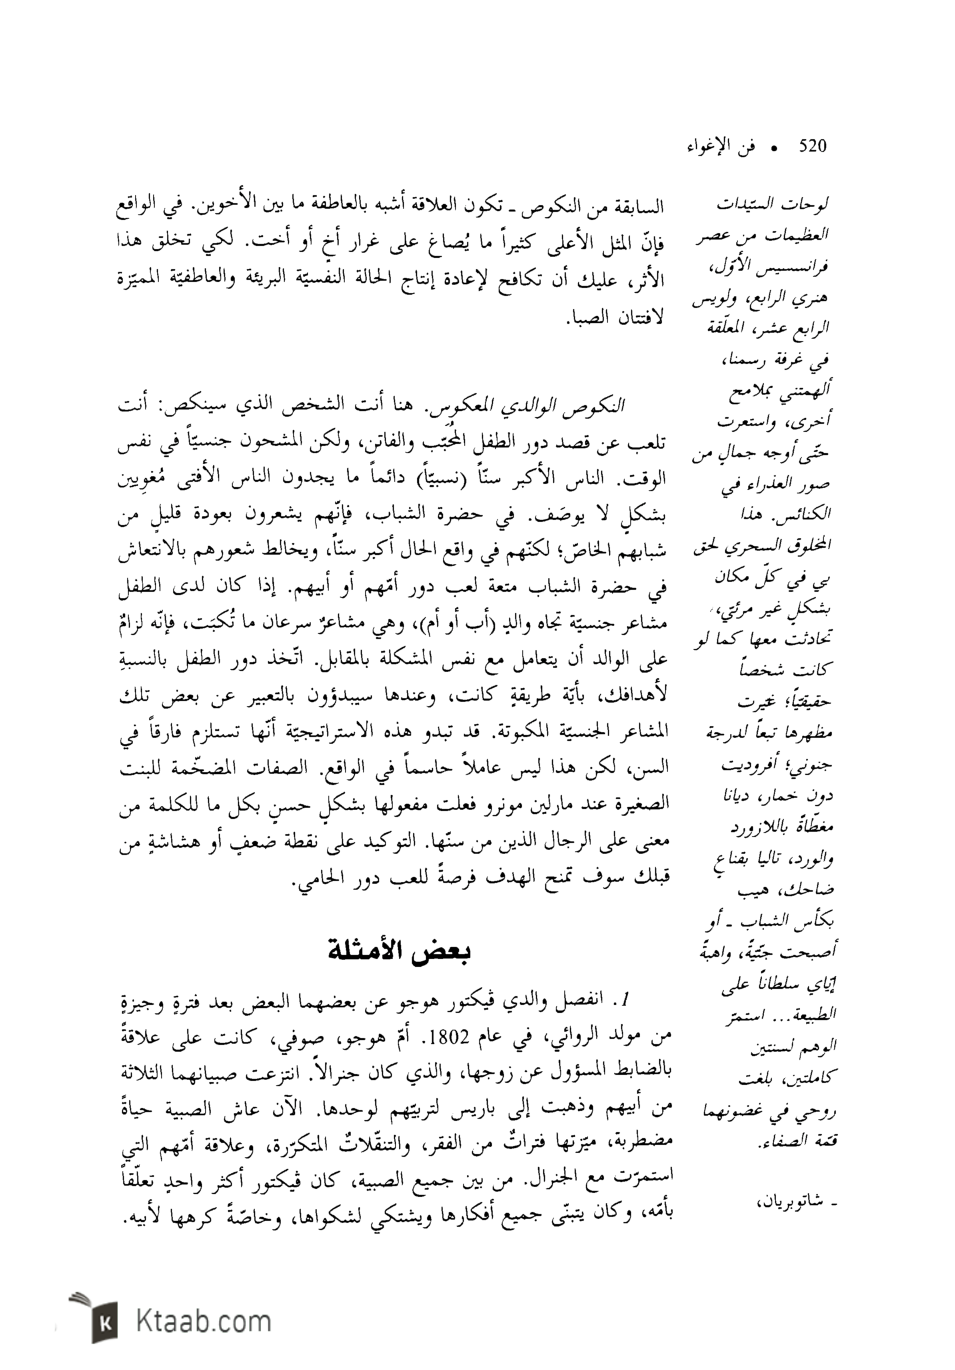 520 • فن الإغواء
لوحات السيّدات
العظيمات من عصر
فرانسسيس الأوّل،
هنري الرابع، ولويس
الرابع عشر، المعلّقة
في غرفة رسمنا،
ألهمتني بملامح
أخرى، واستعرت
حتّى أوجه جمالٍ من
صور العذراء في
الكنائس. هذا
المخلوق السحري لحق
بي في كلّ مكان
بشكلٍ غير مرئي،
تحادثت معها كما لو
كانت شخصاً
حقيقيّاً؛ غيّرت
مظهرها تبعاً لدرجة
جنوني؛ أفروديت
دون خمار، ديانا
مغطّاةً باللازورد
والورد، تاليا بقناعٍ
ضاحك، هيب
بكأس الشباب ـ أو
أصبحت جنّيّةً، واهبةً
إيّاي سلطاناً على
الطبيعة... استمرّ
الوهم لسنتين
كاملتين، بلغت
روحي في غضونهما
قمّة الصفاء.
ـ شاتوبريان،
السابقة من النكوص ـ تكون العلاقة أشبه بالعاطفة ما بين الأخوين. في الواقع
فإنّ المثل الأعلى كثيراً ما يُصاغ على غرار أخٍ أو أخت. لكي تخلق هذا
الأثر، عليك أن تكافح لإعادة إنتاج الحالة النفسيّة البريئة والعاطفيّة المميّزة
لافتتان الصبا.
النكوص الوالدي المعكوس. هنا أنت الشخص الذي سينكص: أنت
تلعب عن قصد دور الطفل المُحَبّب والفاتن، ولكن المشحون جنسيّاً في نفس
الوقت. الناس الأكبر سنّاً (نسبيّاً) دائماً ما يجدون الناس الأفتى مُغوِيين
بشكلٍ لا يوصَف. في حضرة الشباب، فإنّهم يشعرون بعودة قليلٍ من
شبابهم الخاصّ؛ لكنّهم في واقع الحال أكبر سنّاً، ويخالط شعورهم بالانتعاش
في حضرة الشباب متعة لعب دور أمّهم أو أبيهم. إذا كان لدى الطفل
مشاعر جنسيّة تجاه والدٍ (أب أو أم)، وهي مشاعرٌ سرعان ما تُكبَت، فإنّه لزامٌ
على الوالد أن يتعامل مع نفس المشكلة بالمقابل. اتّخذ دور الطفل بالنسبةِ
لأهدافك، بأيّة طريقةٍ كانت، وعندها سيبدؤون بالتعبير عن بعض تلك
المشاعر الجنسيّة المكبوتة. قد تبدو هذه الاستراتيجيّة أنّها تستلزم فارقاً في
السن، لكن هذا ليس عاملاً حاسماً في الواقع. الصفات المضخّمة للبنت
الصغيرة عند مارلين مونرو فعلت مفعولها بشكلٍ حسنٍ بكل ما للكلمة من
معنى على الرجال الذين من سنّها. التوكيد على نقطة ضعفٍ أو هشاشةٍ من
قبلك سوف تمنح الهدف فرصةً للعب دور الحامي.
بعض الأمثلة
1. انفصل والدي ڤيكتور هوجو عن بعضهما البعض بعد فترةٍ وجيزةٍ
من مولد الروائي، في عام 1802. أمّ هوجو، صوفي، كانت على علاقةً
بالضابط المسؤول عن زوجها، والذي كان جنرالاً. انتزعت صبيانهما الثلاثة
من أبيهم وذهبت إلى باريس لتربيّهم لوحدها. الآن عاش الصبية حياةً
مضطربة، ميّزتها فتراتٌ من الفقر، والتنقّلاتُ المتكرّرة، وعلاقة أمّهم التي
استمرّت مع الجنرال. من بين جميع الصبية، كان ڤيكتور أكثر واحدٍ تعلّقاً
بأمّه، وكان يتبنّى جميع أفكارها ويشتكي لشكواها، وخاصّةً كرهها لأبيه.
Ktaab.com